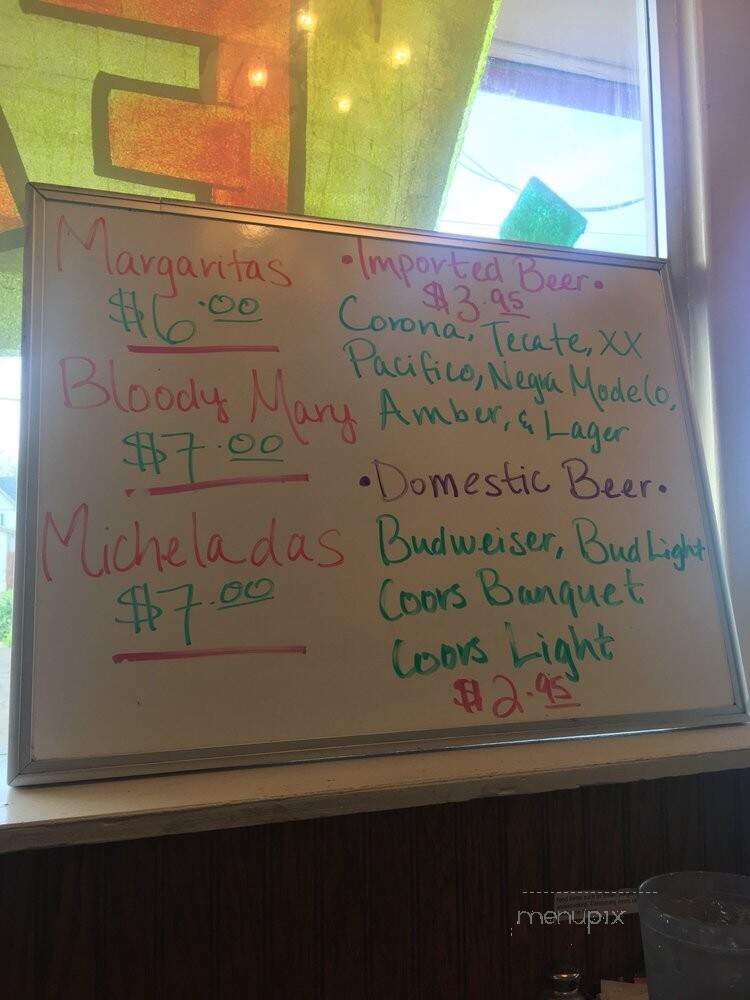 Margaritas
$6.00
Bloody Mary
$7.00
Micheladas
$7.00
•Imported Beer•
$3.95
Corona, Tecate, XX
Pacifico, Negra Modelo,
Amber, & Lager
•Domestic Beer•
Budweiser, Bud Light
Coors Banquet
Coors Light
$2.95
menupix